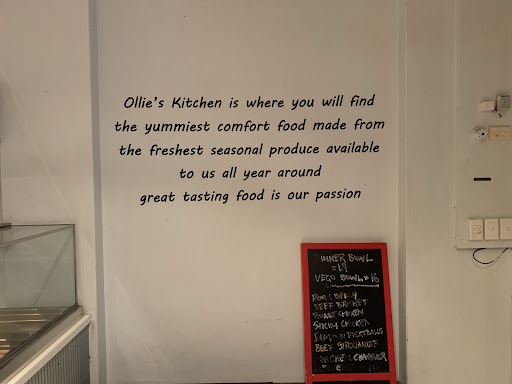 Ollie's Kitchen is where you will find
the yummiest comfort food made from
the freshest seasonal produce available
to us all year around
great tasting food is our passion
DINNER BOWL
=19
VEGO BOWL=16
PORK BELLY
BEEF BRISKET
ROAST CHICKEN
STICKY CHICKEN
MEATBALLS
BEEF STROGANOFF
CHICKEN